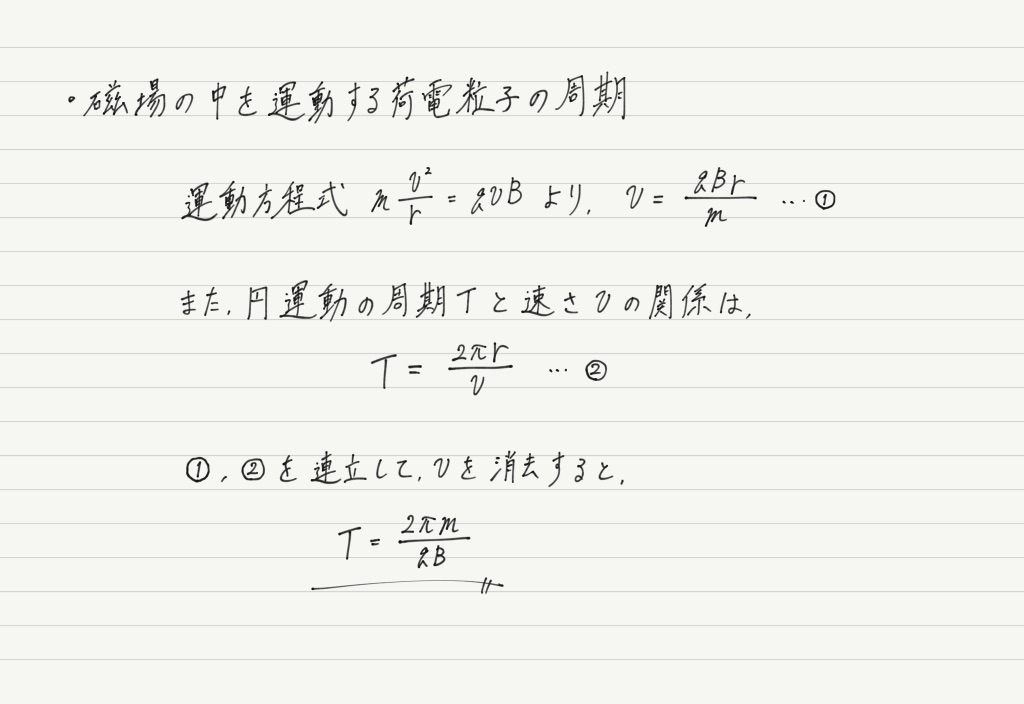 ・磁場の中を運動する荷電粒子の周期
運動方程式 m v²/r = qvB より, v = qBr/m … ①
また, 円運動の周期 T と速さ v の関係は,
T = 2πr/v … ②
①, ②を連立して, v を消去すると,
T = 2πm/qB